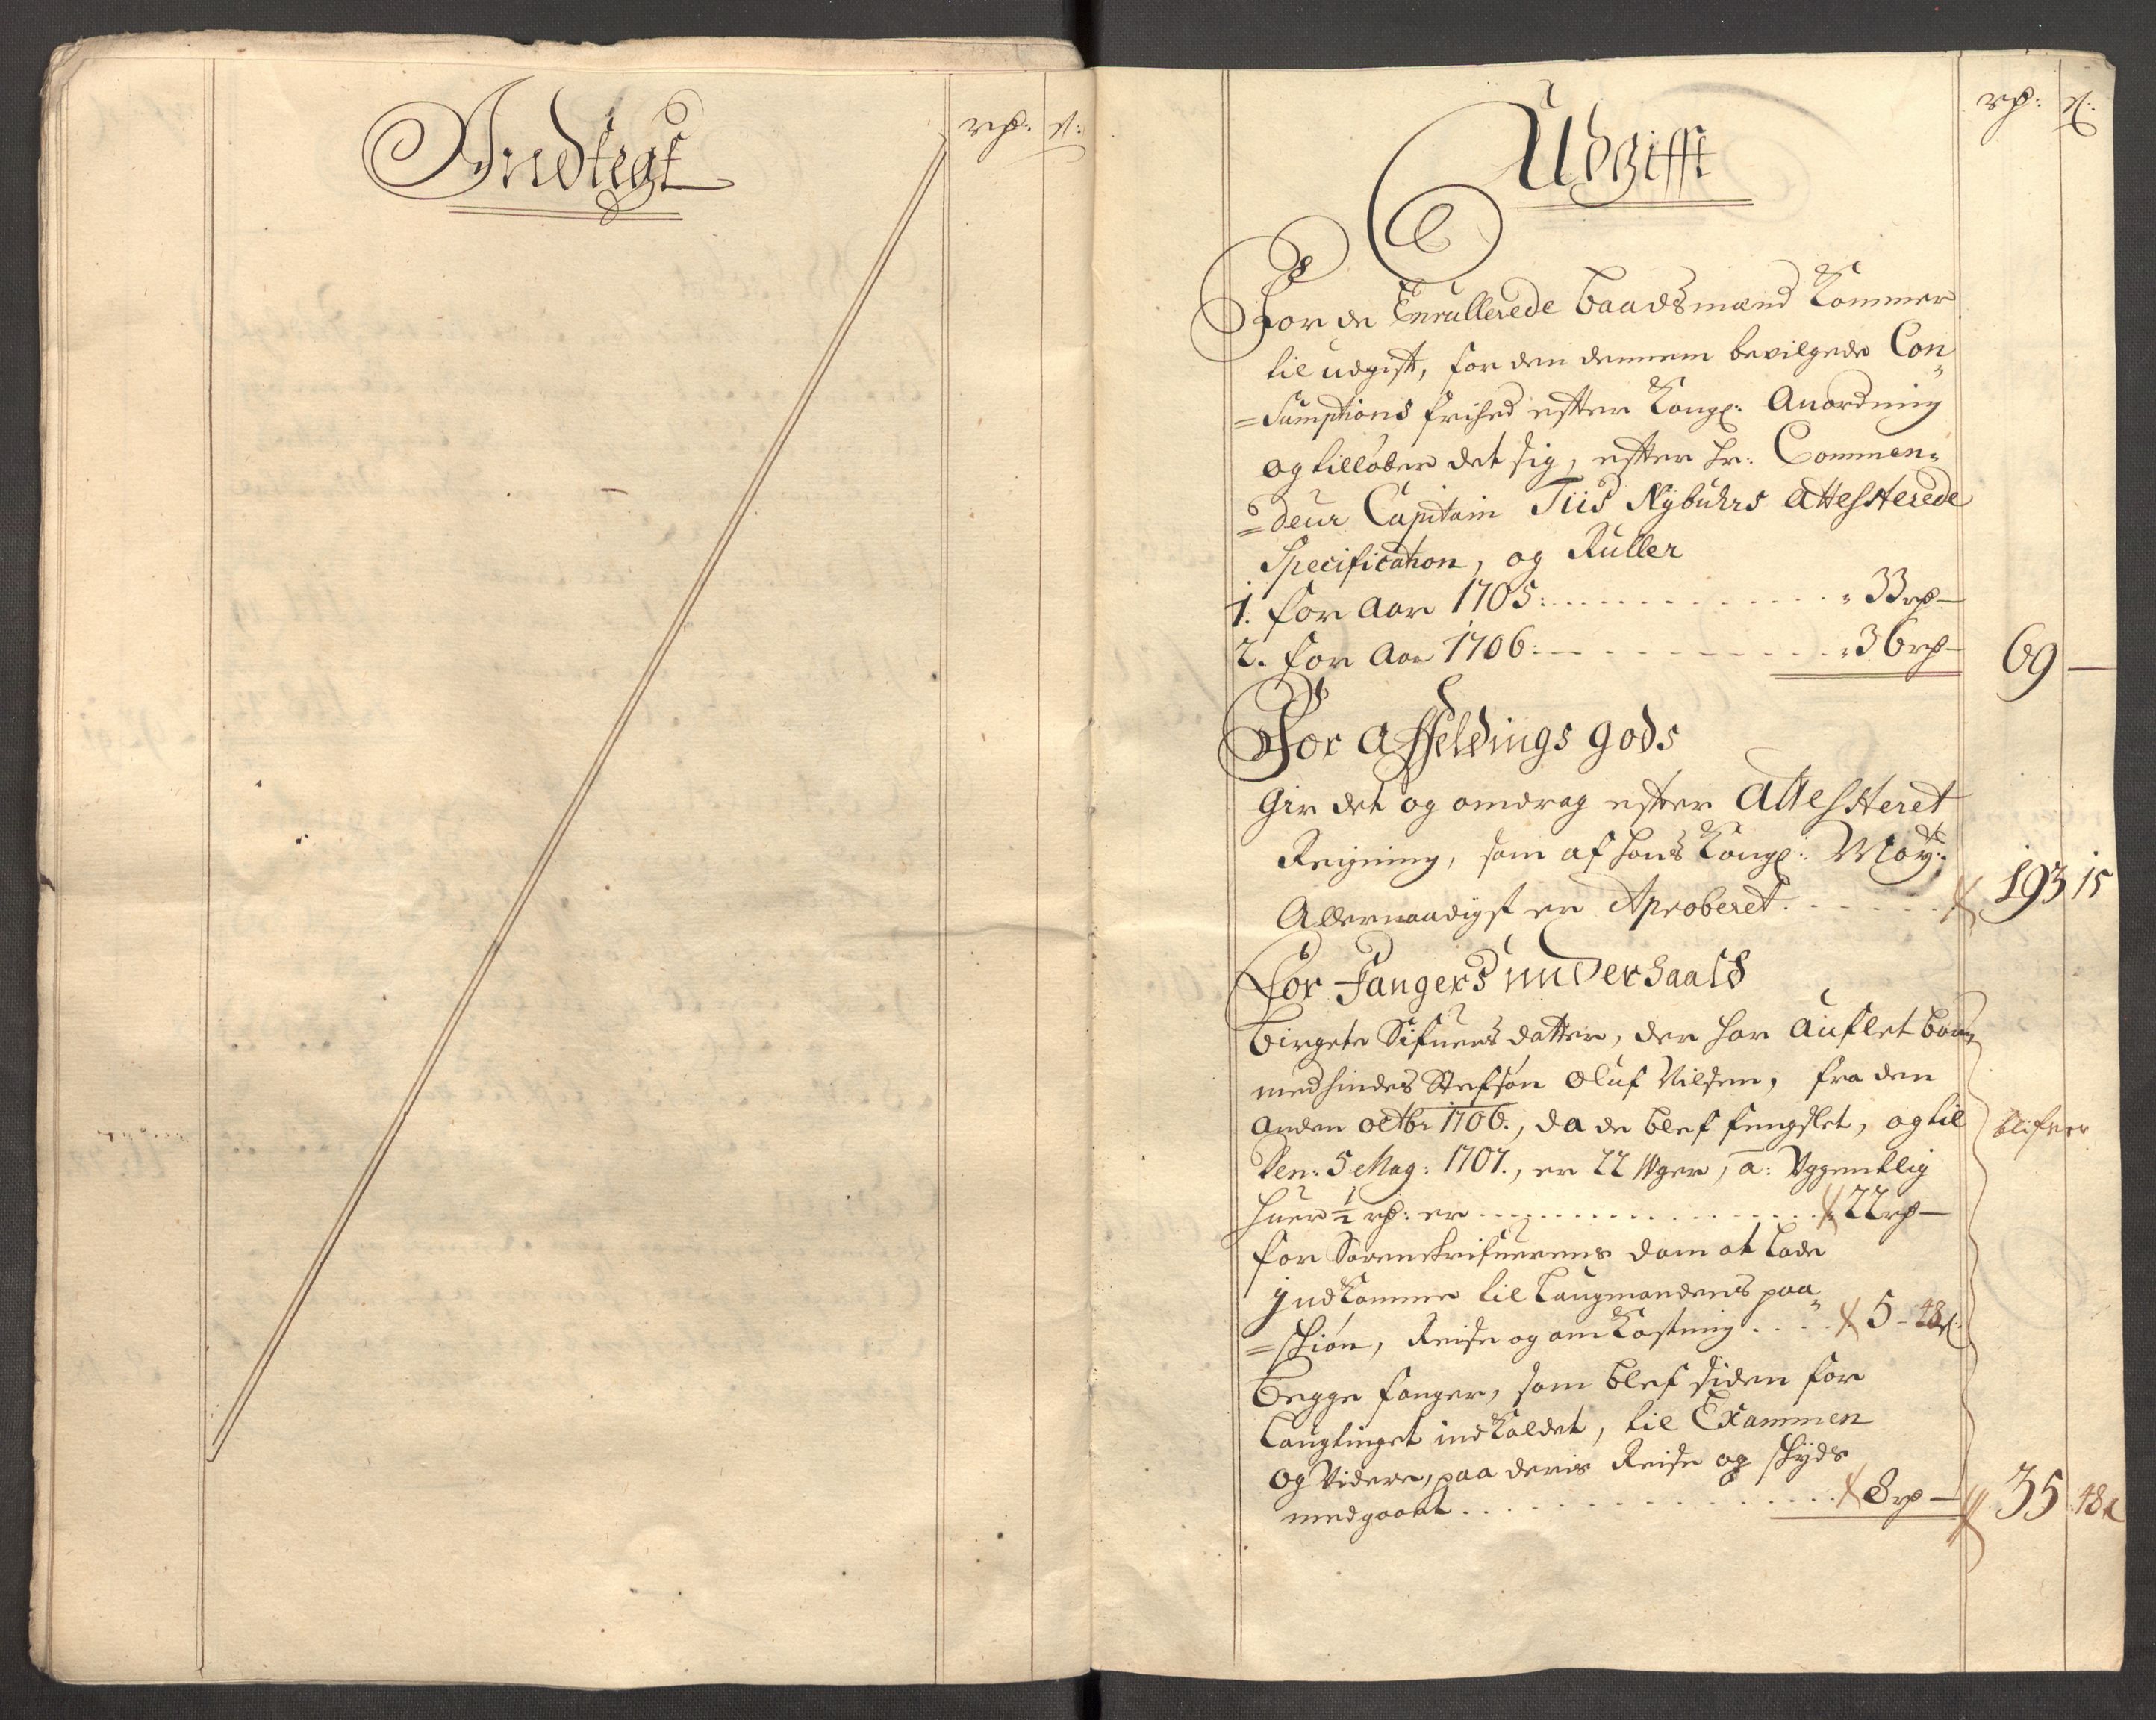 Indtegt
rd: s:
Udgifft
rd: s:
For de Enrullerede baadsmænd kommer
til udgift, for den dennem bevilgede Con
=sumptions frihed efter Kongl: Anordning
og tilløber det sig, efter Hr: Commen=
=deur Capitain Tiis Nybuhrs attesterede
Specification, og Ruller
1. for Aar 1705: 33 rd —
2. for Aar 1706: 36 rd — 69 —
For Affeldings gods
Gir det og omdrag efter Attesteret
Reigning, som af hans Kongl: May:
Allernaadigst er Aproberet 193 15
For Fangers underhaald
Birgete Sifuersdatter, der har auflet barn
med hindes Stefsøn Oluf Nilsen, fra den
anden octbr 1706., da de blef fengslet, og til
den: 5 Mag: 1707., er 22 Uger, a: Uggentlig blifuer
huer ½ rd: er 22 rd —
for Sorenskrifuerens dom at lade
jndkomme til Laugmandens paa
=skiøn, Reise og omkostning 5 - 48 s:
Begge fanger, som blef siden for
Laugtinget indkaldet, til Exammen
og Videre, paa deris Reise og skyds
medgaaet 8 rd — 35 48 s